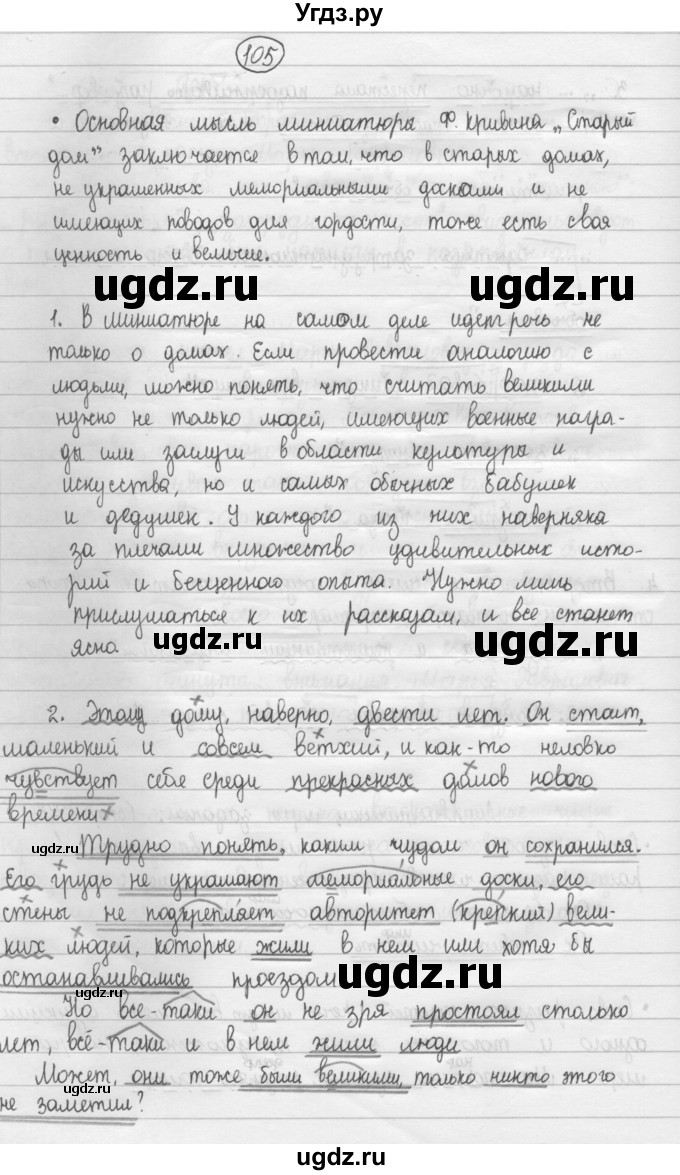 Угдз.ру
105
• Основная мысль миниатюры Ф. Кривина „Старый
дом” заключается в том, что в старых домах,
не украшенных мемориальными досками и не
имеющих поводов для гордости, тоже есть своя
ценность и величие.
ugdz.ru ugdz.ru
1. В миниатюре на самом деле идёт речь не
только о домах. Если провести аналогию с
людьми, можно понять, что считать великими
нужно не только людей, имеющих военные награ-
ды или заслуги в области культуры и
искусства, но и самых обычных бабушек
и дедушек. У каждого из них наверняка
за плечами множество удивительных исто-
рий и бесценного опыта. Нужно лишь
прислушаться к их рассказам, и все станет
ясно.
ugdz.ru ugdz.ru
2. Этому дому, наверно, двести лет. Он стоит,
маленький и совсем ветхий, и как-то неловко
чувствует себя среди прекрасных домов нового
времени.
Трудно понять, каким чудом он сохранился.
ugdz.ru
Его грудь не украшают мемориальные доски, его
стены не подкрепляет авторитет (крепкий) вели-
ких людей, которые жили в нем или хотя бы
останавливались проездом
ugdz.ru
ugdz.ru
Но все-таки он не зря простоял столько
лет, всё-таки и в нем жили люди
Может, они тоже были великими, только никто этого
не заметил?
ugdz.ru